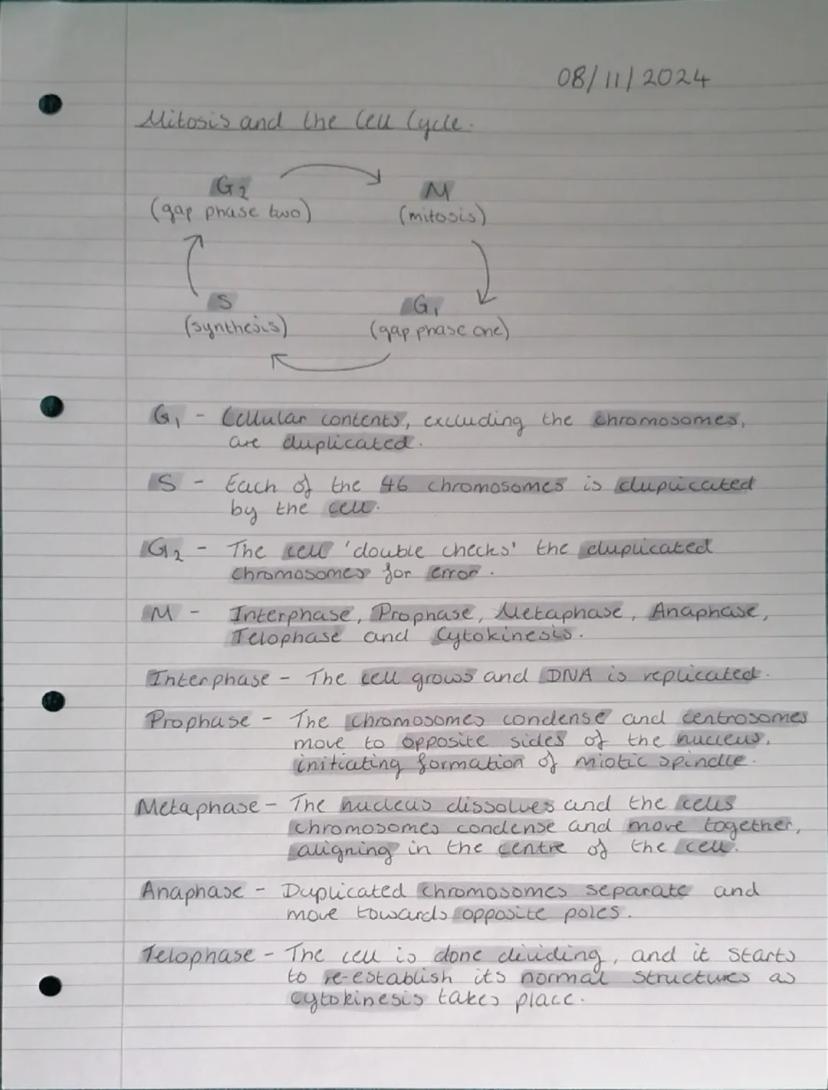 08/11/2024
Mitosis and the Cell Cycle.
G2 M
(gap phase two) (mitosis)
S G1
(synthesis) (gap phase one)
G1 - Cellular contents, excluding the chromosomes,
are duplicated.
S - Each of the 46 chromosomes is duplicated
by the cell.
G2 - The cell 'double checks' the duplicated
chromosomes for error.
M - Interphase, Prophase, Metaphase, Anaphase,
Telophase and Cytokinesis.
Interphase - The cell grows and DNA is replicated.
Prophase - The chromosomes condense and centrosomes
move to opposite sides of the nucleus,
initiating formation of miotic spindle.
Metaphase - The nucleus dissolves and the cells
chromosomes condense and move together,
aligning in the centre of the cell.
Anaphase - Duplicated chromosomes separate and
move towards opposite poles.
Telophase - The cell is done dividing, and it starts
to re-establish its normal structures as
cytokinesis takes place.